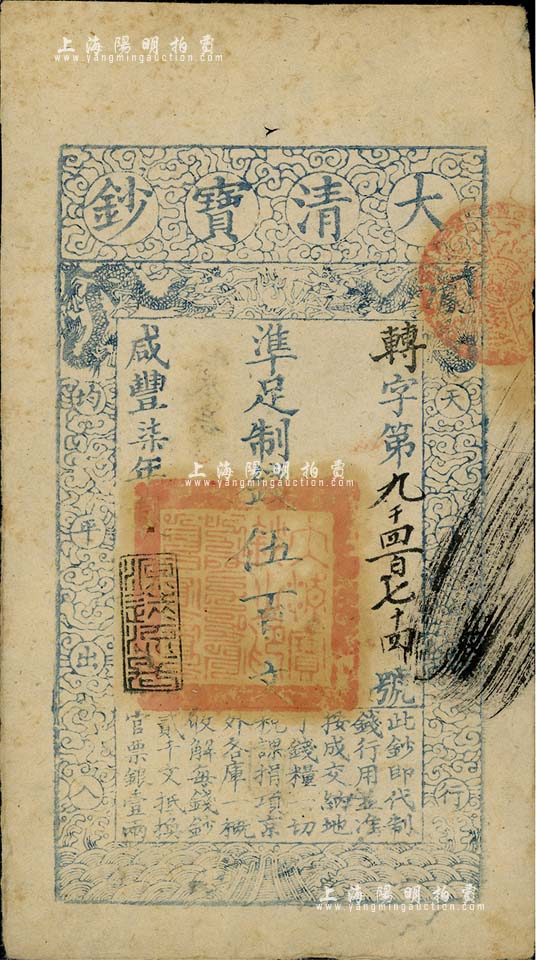 上海陽明拍賣
www.yangmingauction.com
大清寶鈔
轉字第九千四百七十四號
準足制錢伍百文
咸豐柒年
天
行
均平出入
此鈔即代制
錢行用並准
按成交納地
丁錢糧一切
稅課捐項京
外各庫一概
收解每錢鈔
貳千文抵換
官票銀壹兩
上海陽明拍賣
www.yangmingauction.com
上海陽明拍賣
www.yangmingauction.com